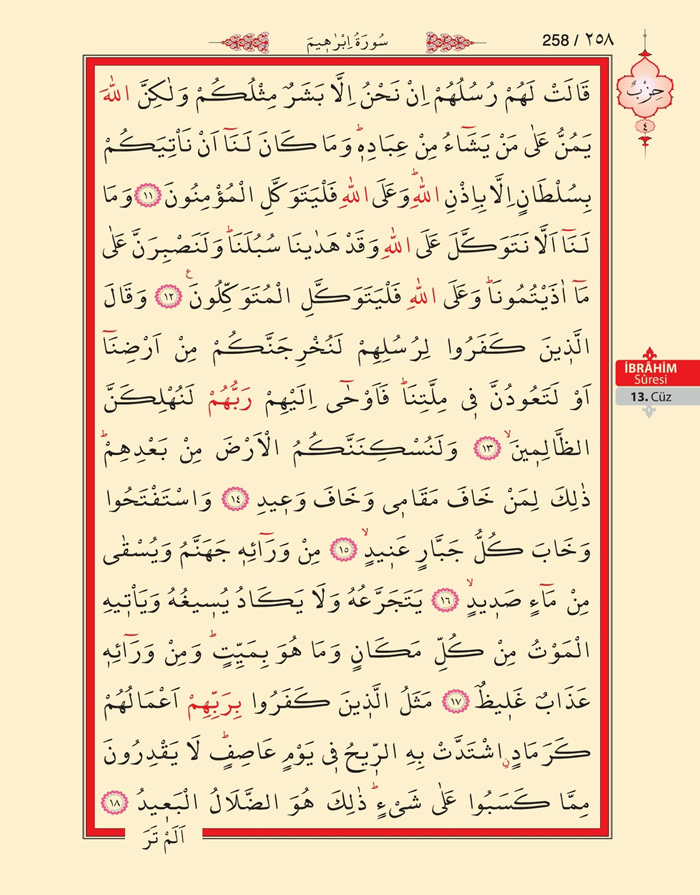 سُورَةُ اِبْرٰه۪يمَ
258 / ٢٥٨
حِزْبٌ
٤
قَالَتْ لَهُمْ رُسُلُهُمْ اِنْ نَحْنُ اِلَّا بَشَرٌ مِثْلُكُمْ وَلٰكِنَّ اللّٰهَ
يَمُنُّ عَلٰى مَنْ يَشَٓاءُ مِنْ عِبَادِه۪ۜ وَمَا كَانَ لَنَٓا اَنْ نَأْتِيَكُمْ
بِسُلْطَانٍ اِلَّا بِاِذْنِ اللّٰهِۜ وَعَلَى اللّٰهِ فَلْيَتَوَكَّلِ الْمُؤْمِنُونَ ﴿١١﴾ وَمَا
لَنَٓا اَلَّا نَتَوَكَّلَ عَلَى اللّٰهِ وَقَدْ هَدٰينَا سُبُلَنَاۜ وَلَنَصْبِرَنَّ عَلٰى
مَٓا اٰذَيْتُمُونَاۜ وَعَلَى اللّٰهِ فَلْيَتَوَكَّلِ الْمُتَوَكِّلُونَ۟ ﴿١٢﴾ وَقَالَ
الَّذ۪ينَ كَفَرُوا لِرُسُلِهِمْ لَنُخْرِجَنَّكُمْ مِنْ اَرْضِنَٓا
اَوْ لَتَعُودُنَّ ف۪ي مِلَّتِنَاۜ فَاَوْحٰٓى اِلَيْهِمْ رَبُّهُمْ لَنُهْلِكَنَّ
الظَّالِم۪ينَۙ ﴿١٣﴾ وَلَنُسْكِنَنَّكُمُ الْاَرْضَ مِنْ بَعْدِهِمْۜ
ذٰلِكَ لِمَنْ خَافَ مَقَام۪ي وَخَافَ وَع۪يدِ ﴿١٤﴾ وَاسْتَفْتَحُوا
وَخَابَ كُلُّ جَبَّارٍ عَن۪يدٍۙ ﴿١٥﴾ مِنْ وَرَٓائِه۪ جَهَنَّمُ وَيُسْقٰى
مِنْ مَٓاءٍ صَد۪يدٍۙ ﴿١٦﴾ يَتَجَرَّعُهُ وَلَا يَكَادُ يُس۪يغُهُ وَيَأْت۪يهِ
الْمَوْتُ مِنْ كُلِّ مَكَانٍ وَمَا هُوَ بِمَيِّتٍۜ وَمِنْ وَرَٓائِه۪
عَذَابٌ غَل۪يظٌ ﴿١٧﴾ مَثَلُ الَّذ۪ينَ كَفَرُوا بِرَبِّهِمْ اَعْمَالُهُمْ
كَرَمَادٍۨ اشْتَدَّتْ بِهِ الرّ۪يحُ ف۪ي يَوْمٍ عَاصِفٍۜ لَا يَقْدِرُونَ
مِمَّا كَسَبُوا عَلٰى شَيْءٍۜ ذٰلِكَ هُوَ الضَّلَالُ الْبَع۪يدُ ﴿١٨﴾
اَلَمْ تَرَ
İBRÂHÎM
Sûresi
13. Cüz